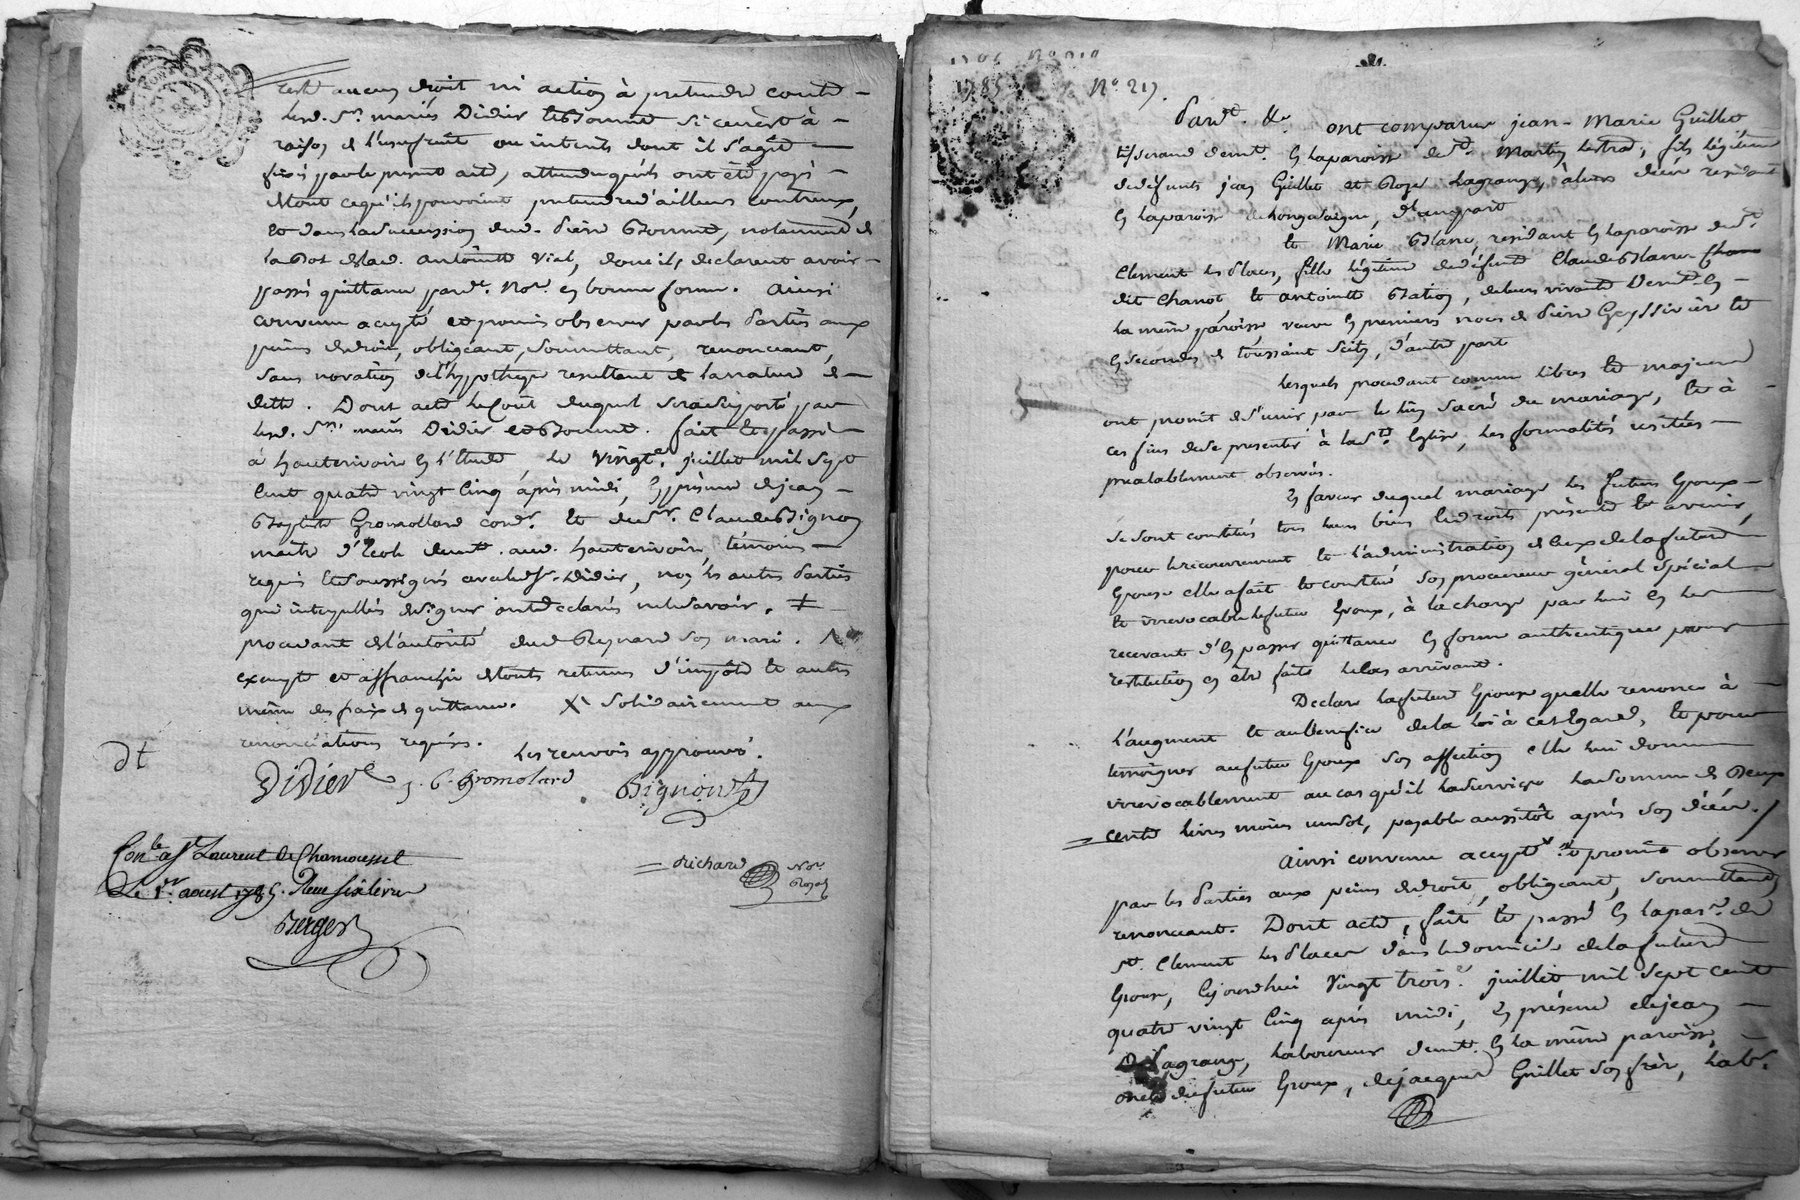 reste aucun droit ni action à pretendre contre
lesd. Srs. mariés Didier et Bonne si ce n'est à
raison de l'usufruit ou interets dont il s'agit
fixés par le present acte, attendu qu'ils ont été payés
de tout ce qu'ils pouvoient pretendre d'ailleurs contr'eux,
et dans la succession dud. Pierre Bonne, notamment de
la dot de lad. antoinette Vial, dont ils declarent avoir
passé quittance pardt. Nore. en bonne forme. ainsi
convenu accepté et promis observer par les Parties aux
peines de droit, obligeant, soumettant, renonceant,
sans novation de l'hypotheque resultant de la nature de
dette. Dont acte le coût duquel sera supporté par
lesd. Srs. mariés Didier et Bonne. fait et passé
à hauterivoire en l'étude, le vingt. juillet mil sept
cent quatre vingt cinq après midi, en présence de jean
Baptiste Gromollard cordr. et de Sr. Claude Bignon
maitre d'Ecole demt. aud. hauterivoire, témoins
requis et soussignés avec led. Sr. Didier, non les autres Parties
qui interpellées de signer ont declaré ne le savoir. ‡
procedant de l'autorité dud. Reynard son mari.
exempt et affranchie de touts retenus d'impôts et autres
même des frais de quittance. X solidairement aux
renonciations requises. les renvois approuvés.
Dt
Didier J. B. Gromolard Bignon
Conlé. a St. Laurent de Chamousset
Le 1er. aoust 1785. Reçu six livres
Berger
Richard Nore.
Royal
1785 No. 219
1785 No. 217.
Pardt. &c. ont comparu jean-Marie Guillot
tisserand demt. en la paroisse de St. Martin Lestra, fils légitime
de défunts jean Guillot et Roze Lagrange, à leur décès residant
en la paroisse de Longesaigne, d'une part
et Marie Blanc, residant en la paroisse de St.
Clement les Places, fille légitime de défunts Claude Blanc
dit Chanot et antoinette Bation, de leur vivant Demt. en
la même paroisse veuve en premiers noces de Pierre Geyssivière et
en secondes de toussaint Seity, d'autre part
lesquels procedant comme libres et majeurs
ont promit de s'unir par le lien sacré du mariage, et à
ces fins de se presenter à la Ste. Eglise, les formalités usitées
prealablement observées.
En faveur duquel mariage les futurs Epoux
se sont constitués tous leurs biens et droits présents et avenir,
pour le recouvrement et l'administration de ceux de la future
Epouse elle a fait et constitué son procureur général spécial
et irrevocable le futur Epoux, à la charge par lui en les
recevant d'en passer quittance en forme authentique pour
restitution en etre faite le cas arrivant.
Declare la future Epouse qu'elle renonce à
l'augment et au Benefice de la Loi à cet Egard, et pour
temoigner au futur Epoux son affection elle lui donne
irrevocablement au cas qu'il la survive la somme de Deux
cents livres moins un sol, payable aussitôt après son décès.
Ainsi convenu accepté et promis observer
par les Parties aux peines de droit, obligeant, soumettant,
renonceant. Dont acte, fait et passé en la parse. de
St. Clement les Places dans le domicile de la future
Epouse, cejourdhui vingt trois. juillet mil sept cent
quatre vingt cinq après midi, En présence de jean
Lagrange, laboureur demt. en la même paroisse,
oncle du futur Epoux, de jacques Guillot son frère, labr.